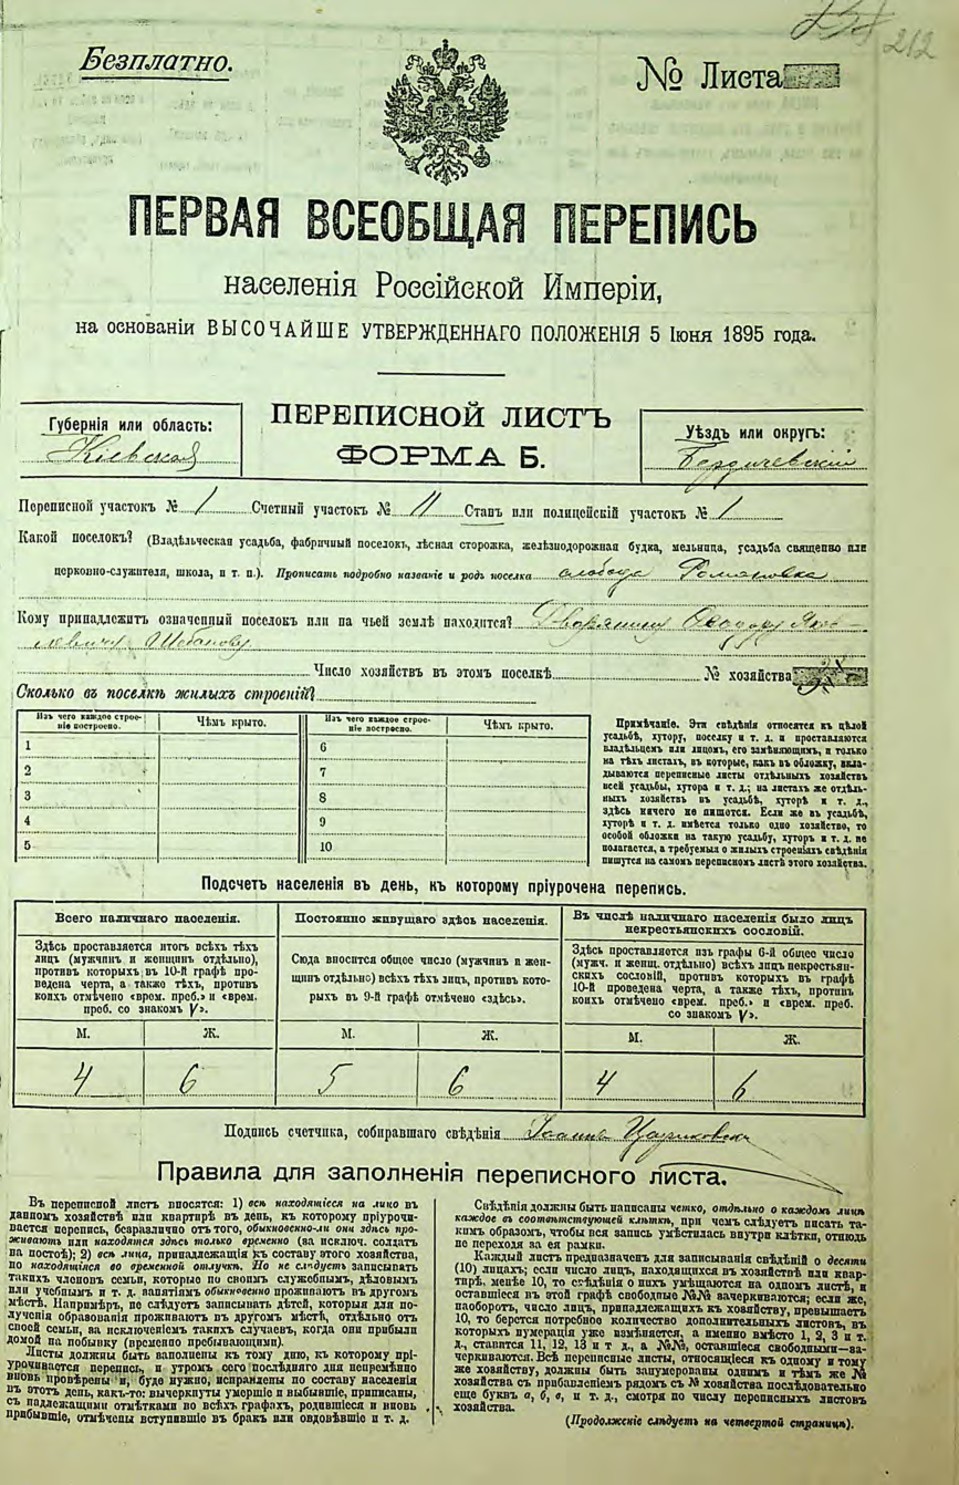 212
Безплатно.
№ Листа
ПЕРВАЯ ВСЕОБЩАЯ ПЕРЕПИСЬ
населенія Россійской Имперіи,
на основаніи ВЫСОЧАЙШЕ УТВЕРЖДЕННАГО ПОЛОЖЕНІЯ 5 Іюня 1895 года.
Губернія или область:
Кіевская
ПЕРЕПИСНОЙ ЛИСТЪ
ФОРМА Б.
Уѣздъ или округъ:
Бердичевскій
Переписной участокъ № 1 Счетный участокъ № 11 Станъ или полицейскій участокъ № 1
Какой поселокъ? (Владѣльческая усадьба, фабричный поселокъ, лѣсная сторожка, желѣзнодорожная будка, мельница, усадьба священно или
церковно-служителя, школа, и т. п.). Прописать подробно названіе и родъ поселка слобода Романовка
Кому принадлежитъ означенный поселокъ или на чьей землѣ находится? Дворянину
Число хозяйствъ въ этомъ поселкѣ № хозяйства
Сколько въ поселкѣ жилыхъ строеній?
Изъ чего каждое строе-
ніе построено.
Чѣмъ крыто.
Изъ чего каждое строе-
ніе построено.
Чѣмъ крыто.
1
2
3
4
5
6
7
8
9
10
Примѣчаніе. Эти свѣдѣнія относятся къ цѣлой
усадьбѣ, хутору, поселку и т. д. и проставляются
владѣльцемъ или лицомъ, его замѣняющимъ, и только
на тѣхъ листахъ, въ которые, какъ въ обложку, вкла-
дываются переписные листы отдѣльныхъ хозяйствъ
всей усадьбы, хутора и т. д.; на листахъ же отдѣль-
ныхъ хозяйствъ въ усадьбѣ, хуторѣ и т. д.,
здѣсь ничего не пишется. Если же въ усадьбѣ,
хуторѣ и т. д. имѣется только одно хозяйство, то
особой обложки на такую усадьбу, хуторъ и т. д. не
полагается, а требуемыя о жилыхъ строеніяхъ свѣдѣнія
пишутся на самомъ переписномъ листѣ этого хозяйства.
Подсчетъ населенія въ день, къ которому пріурочена перепись.
Всего наличнаго населенія.
Здѣсь проставляется итогъ всѣхъ тѣхъ
лицъ (мужчинъ и женщинъ отдѣльно),
противъ которыхъ въ 10-й графѣ про-
ведена черта, а также тѣхъ, противъ
коихъ отмѣчено «врем. преб.» и «врем.
преб. со знакомъ V».
Постоянно живущаго здѣсь населенія.
Сюда вносится общее число (мужчинъ и жен-
щинъ отдѣльно) всѣхъ тѣхъ лицъ, противъ кото-
рыхъ въ 9-й графѣ отмѣчено «здѣсь».
Въ числѣ наличнаго населенія было лицъ
некрестьянскихъ сословій.
Здѣсь проставляется изъ графы 6-й общее число
(мужч. и женщ. отдѣльно) всѣхъ лицъ некрестьян-
скихъ сословій, противъ которыхъ въ графѣ
10-й проведена черта, а также тѣхъ, противъ
коихъ отмѣчено «врем. преб.» и «врем. преб.
со знакомъ V».
М. Ж. М. Ж. М. Ж.
4 6 5 6 4 6
Подпись счетчика, собиравшаго свѣдѣнія
Правила для заполненія переписного листа.
Въ переписной листъ вносятся: 1) всѣ находящіеся на лицо въ
данномъ хозяйствѣ или квартирѣ въ день, къ которому пріурочи-
вается перепись, безразлично отъ того, обыкновенно-ли они здѣсь про-
живаютъ или находятся здѣсь только временно (за исключ. солдатъ
на постоѣ); 2) всѣ лица, принадлежащія къ составу этого хозяйства,
но находящіяся во временной отлучкѣ. Но не слѣдуетъ записывать
такихъ членовъ семьи, которые по своимъ служебнымъ, дѣловымъ
или учебнымъ и т. д. занятіямъ обыкновенно проживаютъ въ другомъ
мѣстѣ. Напримѣръ, не слѣдуетъ записывать дѣтей, которыя для по-
лученія образованія проживаютъ въ другомъ мѣстѣ, отдѣльно отъ
своей семьи, за исключеніемъ такихъ случаевъ, когда они прибыли
домой на побывку (временно пребывающими).
Листы должны быть заполнены къ тому дню, къ которому прі-
урочивается перепись, и утромъ сего послѣдняго дня непремѣнно
вновь провѣрены и, буде нужно, исправлены по составу населенія
въ этотъ день, какъ-то: вычеркнуты умершіе и выбывшіе, приписаны,
съ надлежащими отмѣтками во всѣхъ графахъ, родившіеся и вновь
прибывшіе, отмѣчены вступившіе въ бракъ или овдовѣвшіе и т. д.
Свѣдѣнія должны быть написаны четко, отдѣльно о каждомъ лицѣ
каждое въ соотвѣтствующей клѣткѣ, при чемъ слѣдуетъ писать та-
кимъ образомъ, чтобы вся запись умѣстилась внутри клѣтки, отнюдь
не переходя за ея рамки.
Каждый листъ предназначенъ для записыванія свѣдѣній о десяти
(10) лицахъ; если число лицъ, находящихся въ хозяйствѣ или квар-
тирѣ, менѣе 10, то свѣдѣнія о нихъ умѣщаются на одномъ листѣ, и
оставшіеся въ этой графѣ свободные №№ зачеркиваются; если же,
наоборотъ, число лицъ, принадлежащихъ къ хозяйству, превышаетъ
10, то берется потребное количество дополнительныхъ листовъ, въ
которыхъ нумерація уже измѣняется, а именно вмѣсто 1, 2, 3 и т.
д., ставится 11, 12, 13 и т д., а №№, оставшіеся свободными—за-
черкиваются. Всѣ переписные листы, относящіеся къ одному и тому
же хозяйству, должны быть занумерованы однимъ и тѣмъ же №
хозяйства съ прибавленіемъ рядомъ съ № хозяйства послѣдовательно
еще буквъ а, б, в, и т. д., смотря по числу переписныхъ листовъ
хозяйства.
(Продолженіе слѣдуетъ на четвертой страницѣ).